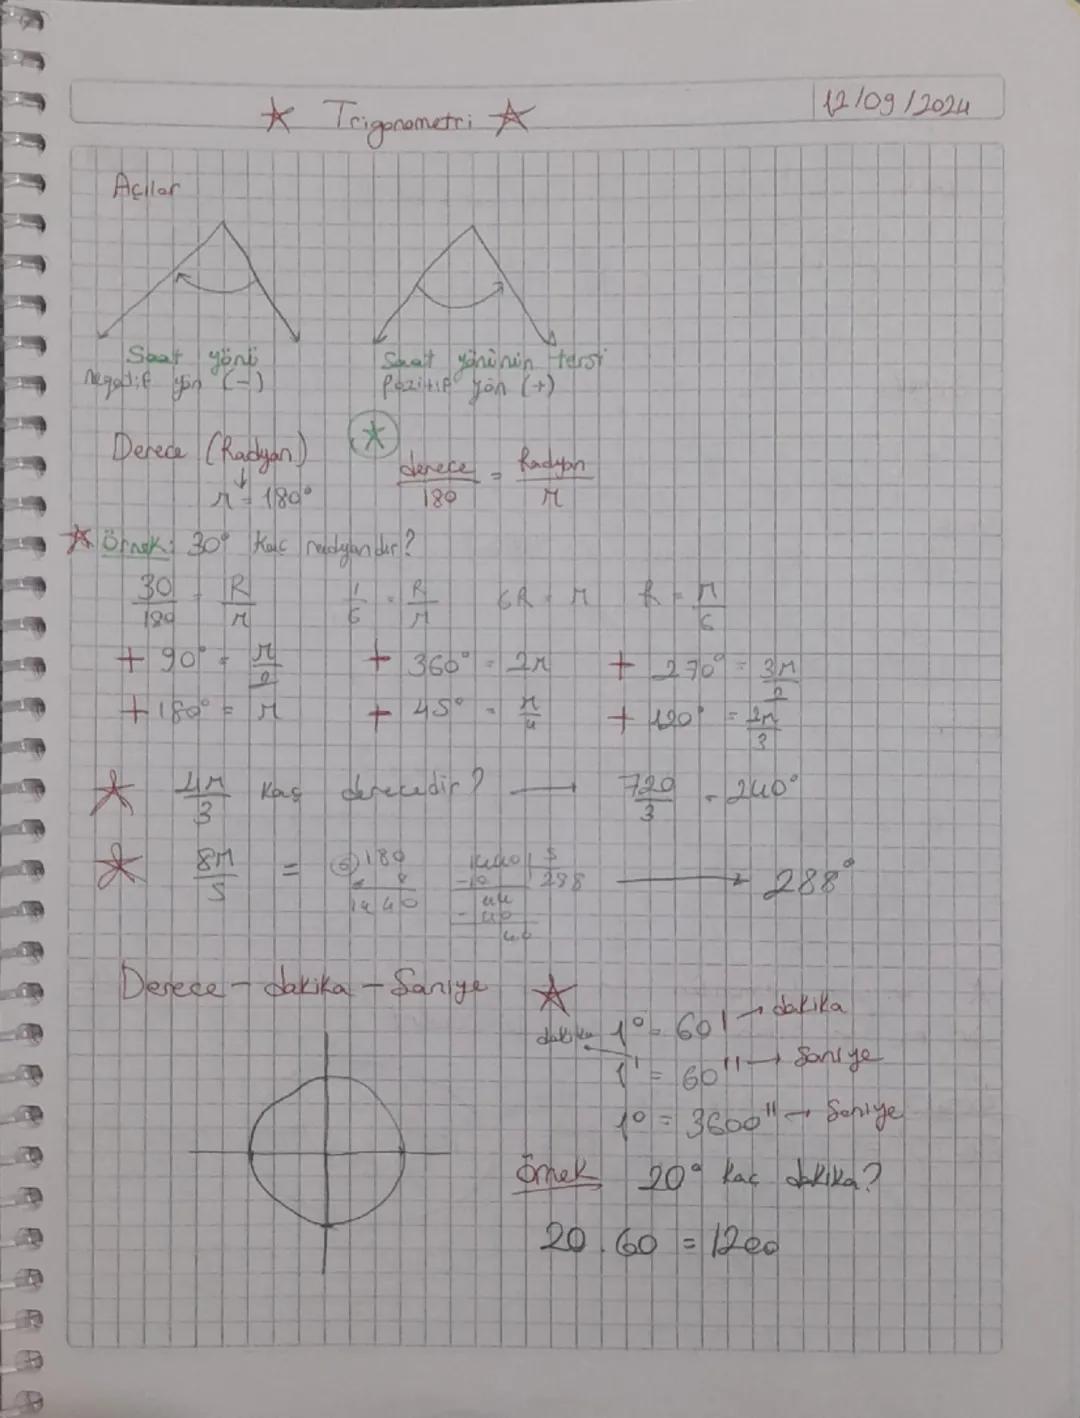 ☆ Trigonometri ☆
12/09/2024
Açılar
Saat yönü
negatif yön (-)
Saat yönünün tersi
pozitif yön (+)
Derece (Radyan)
π = 180°
derece/180 = Radyan/π
☆ Örnek: 30° kaç radyandır?
30/180 = R/π    1/6 = R/π    6R = π    R = π/6
+ 90° = π/2    + 360° = 2π    + 270° = 3π/2
+ 180° = π    + 45° = π/4    + 120° = 2π/3
☆ 4π/3 kaç derecedir? → 720/3 = 240°
☆ 8π/5 = 180 x 8 1440    1440 | 5 288 -10 44 -40 40 → 288°
Derece - dakika - Saniye ☆
dakika 1° = 60' → dakika
1' = 60'' → Saniye
1° = 3600'' → Saniye
Örnek 20° kaç dakika?
20 . 60 = 1200